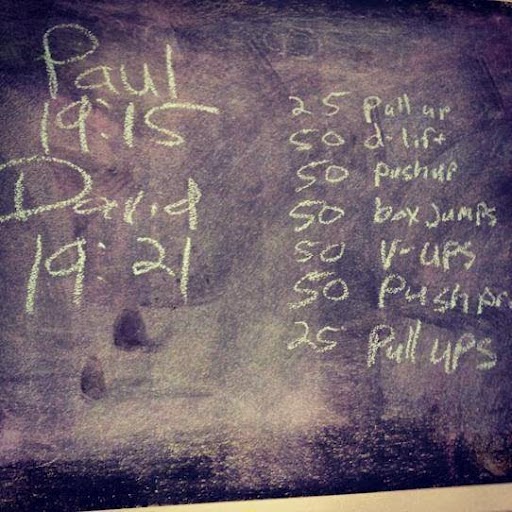 Paul
19:15
David
19:21
25 Pull up
50 d-lift
50 pushup
50 box jumps
50 V-ups
50 Push pr
25 Pull ups